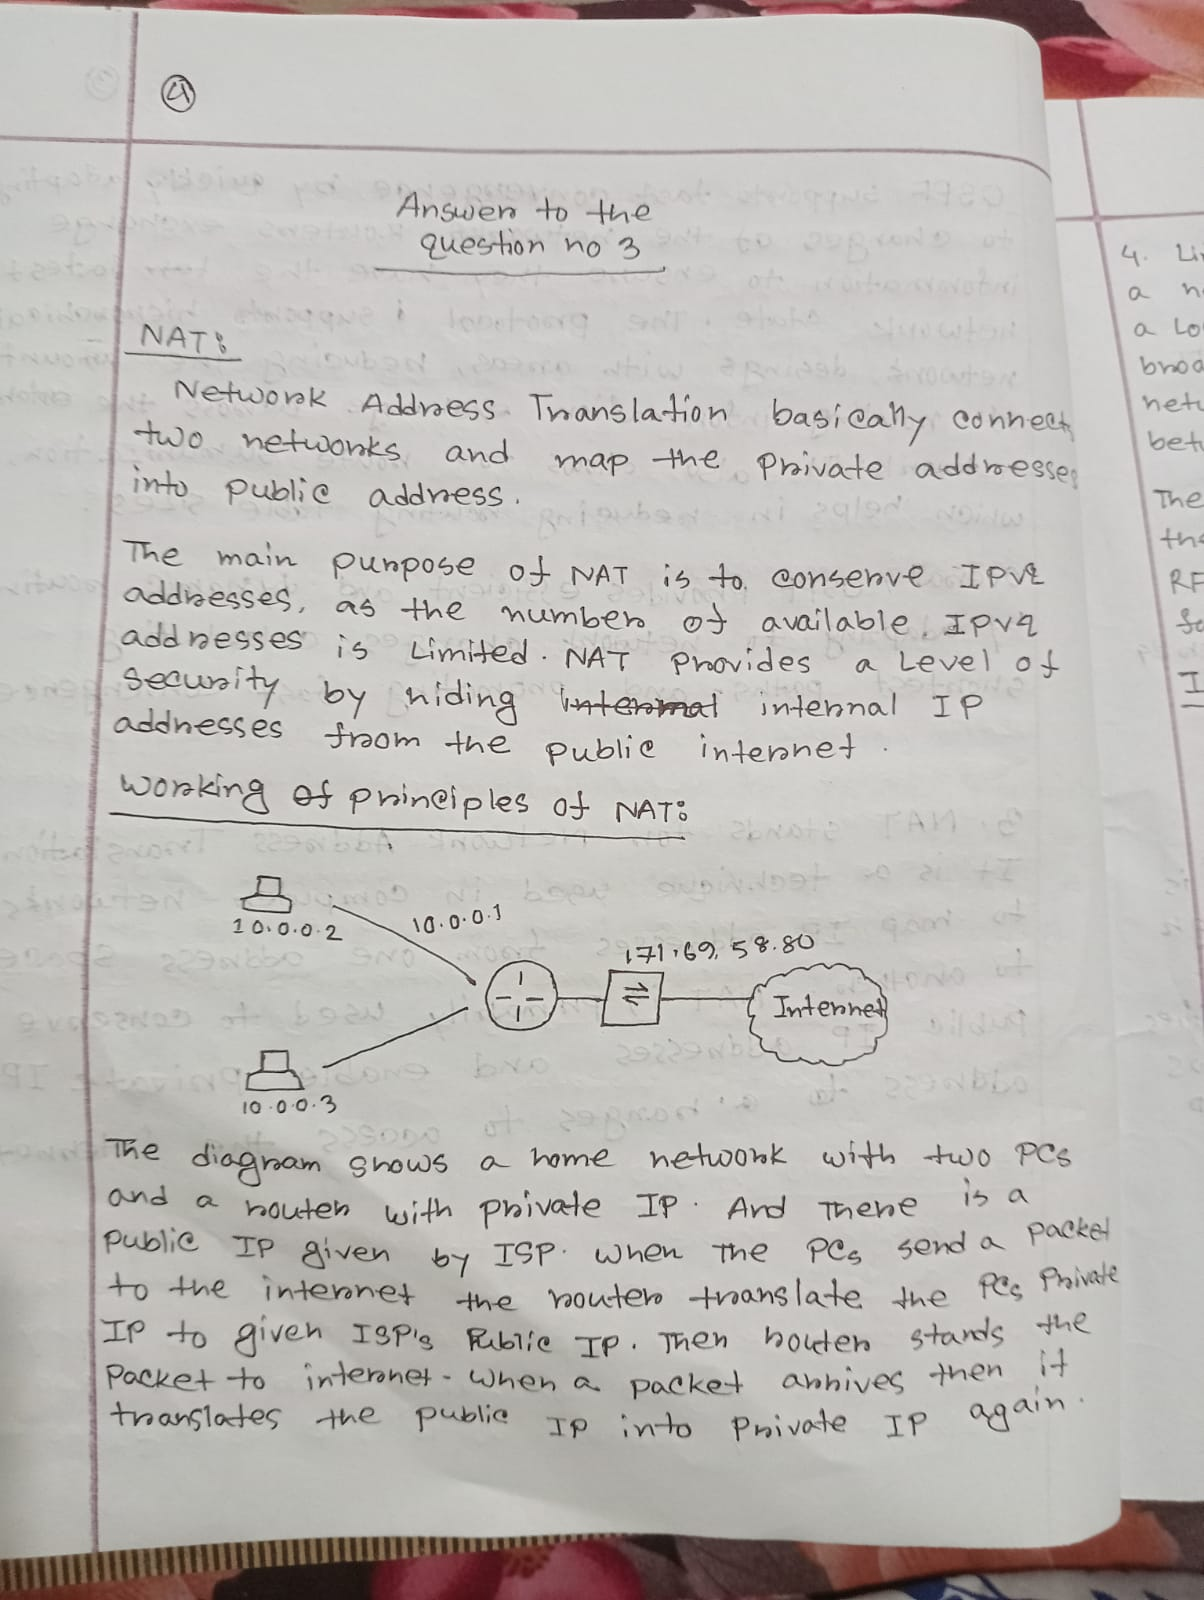 4
Answer to the
question no 3
NAT:
Network Address Translation basically connect
two networks and map the private addresses
into public address.
The main purpose of NAT is to conserve IPv4
addresses, as the number of available IPv4
addresses is Limited. NAT provides a Level of
security by hiding internal IP
addresses from the public internet.
Working of principles of NAT:
10.0.0.2
10.0.0.1
171.69.58.80
Internet
10.0.0.3
The diagram shows a home network with two PCs
and a router with private IP. And There is a
public IP given by ISP. When The PCs send a packet
to the internet the router translate the PCs Private
IP to given ISP's Public IP. Then router stands the
Packet to internet. when a packet arrives then it
translates the public IP into Private IP again.
4. Li
a
a Lo
broa
netw
betw
The
the
RF
I